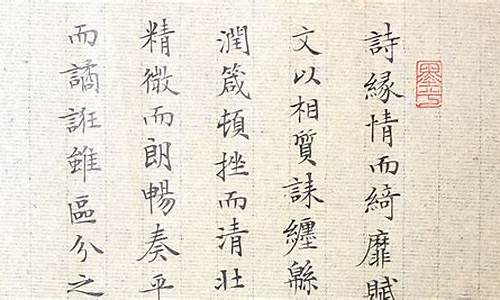 詩緣情而綺靡賦
文以相質誄纏緜
潤箴頓挫而清壯
精微而朗暢奏平
而譎誑雖區分之